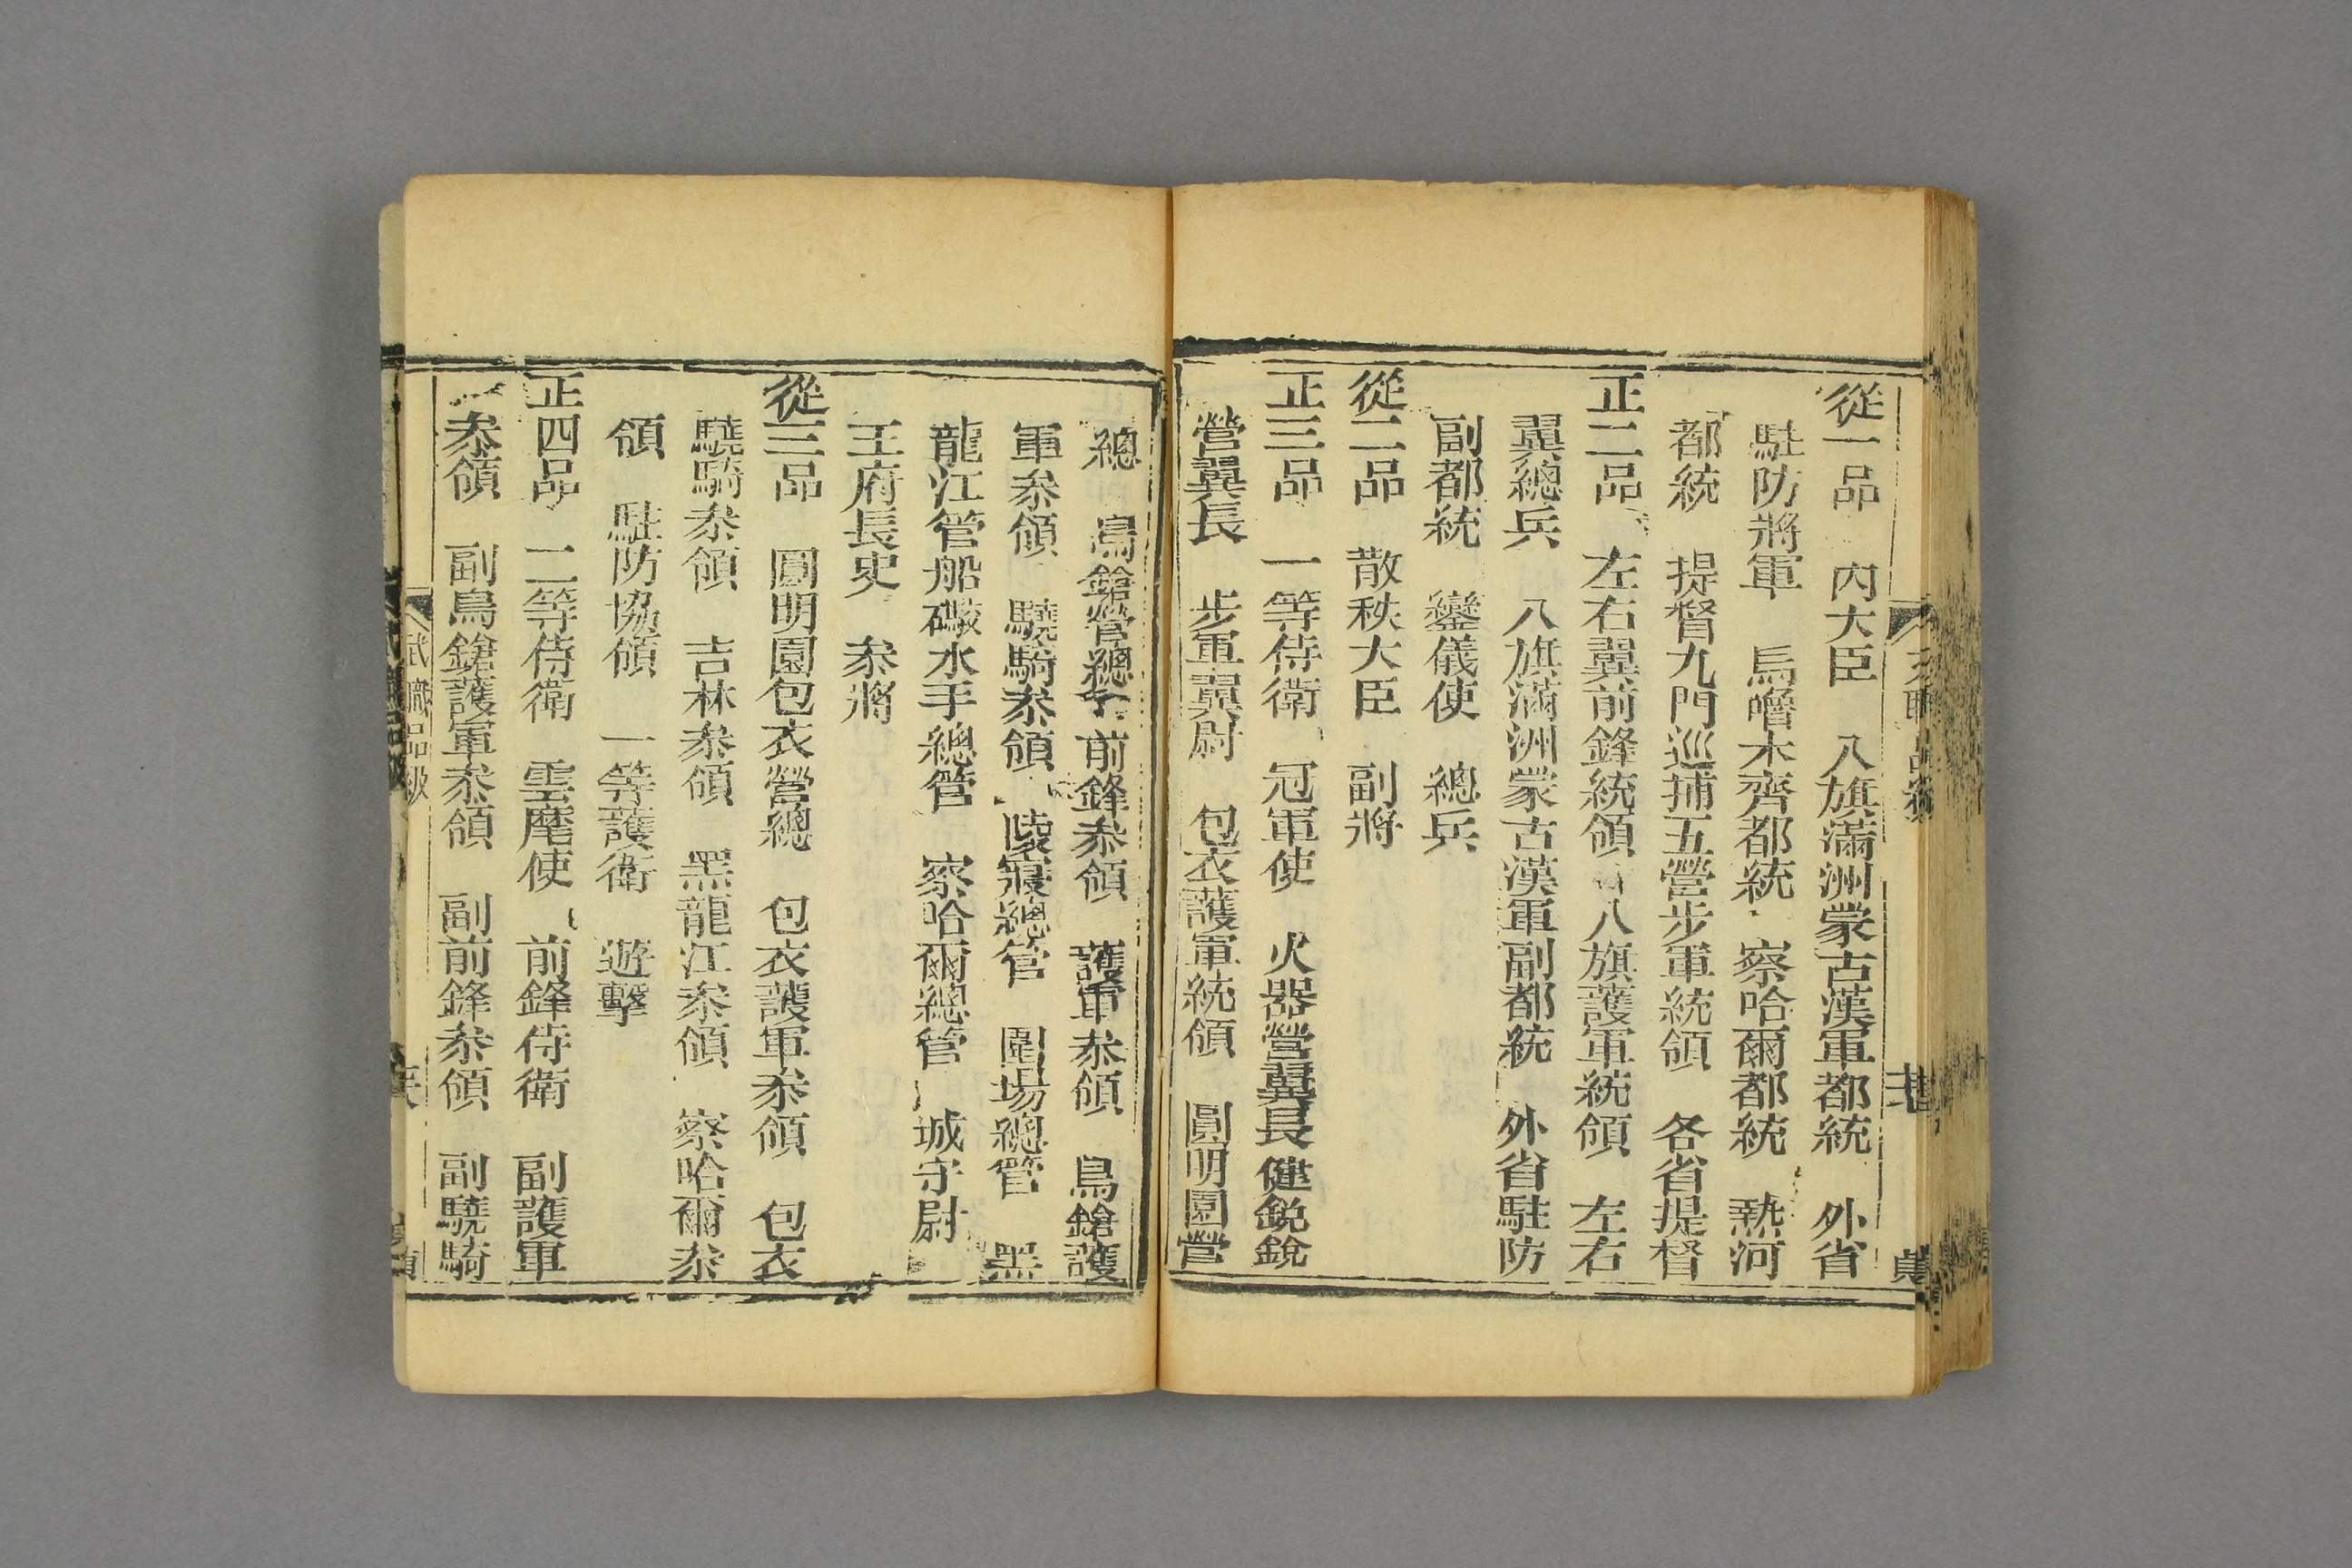 從一品　內大臣　八旗滿洲蒙古漢軍都統　外省
駐防將軍　烏嚕木齊都統　察哈爾都統　熱河
都統　提督九門巡捕五營步軍統領　各省提督
正二品　左右翼前鋒統領　八旗護軍統領　左右
翼總兵　八旗滿洲蒙古漢軍副都統　外省駐防
副都統　鑾儀使　總兵
從二品　散秩大臣　副將
正三品　一等侍衛　冠軍使　火器營翼長　健銳
營翼長　步軍翼尉　包衣護軍統領　圓明園營
總　鳥鎗營總　前鋒叅領　護軍叅領　鳥鎗護
軍叅領　驍騎叅領　陵寢總管　圍場總管　黑
龍江管船礮水手總管　察哈爾總管　城守尉
王府長史　叅將
從三品　圓明園包衣營總　包衣護軍叅領　包衣
驍騎叅領　吉林叅領　黑龍江叅領　察哈爾叅
領　駐防協領　一等護衛　遊擊
正四品　二等侍衛　雲麾使　前鋒侍衛　副護軍
叅領　副鳥鎗護軍叅領　副前鋒叅領　副驍騎
武職品級